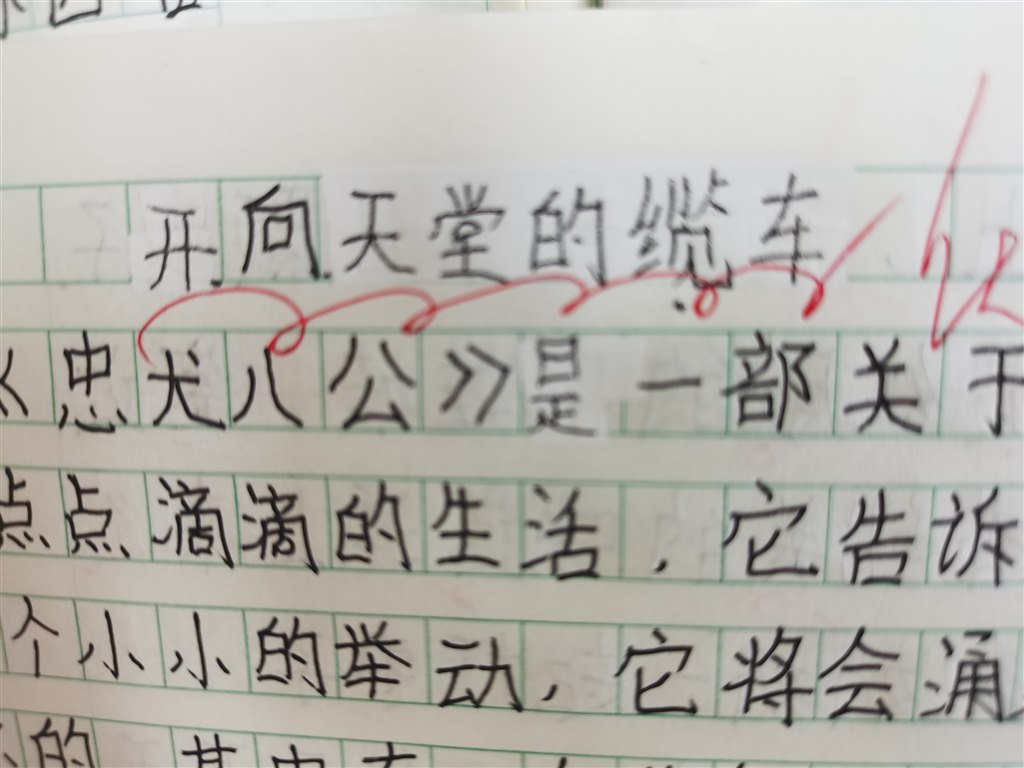 开向天堂的缆车
《忠犬八公》是一部关于
点点滴滴的生活，它告诉
个小小的举动，它将会涌
的 其中有